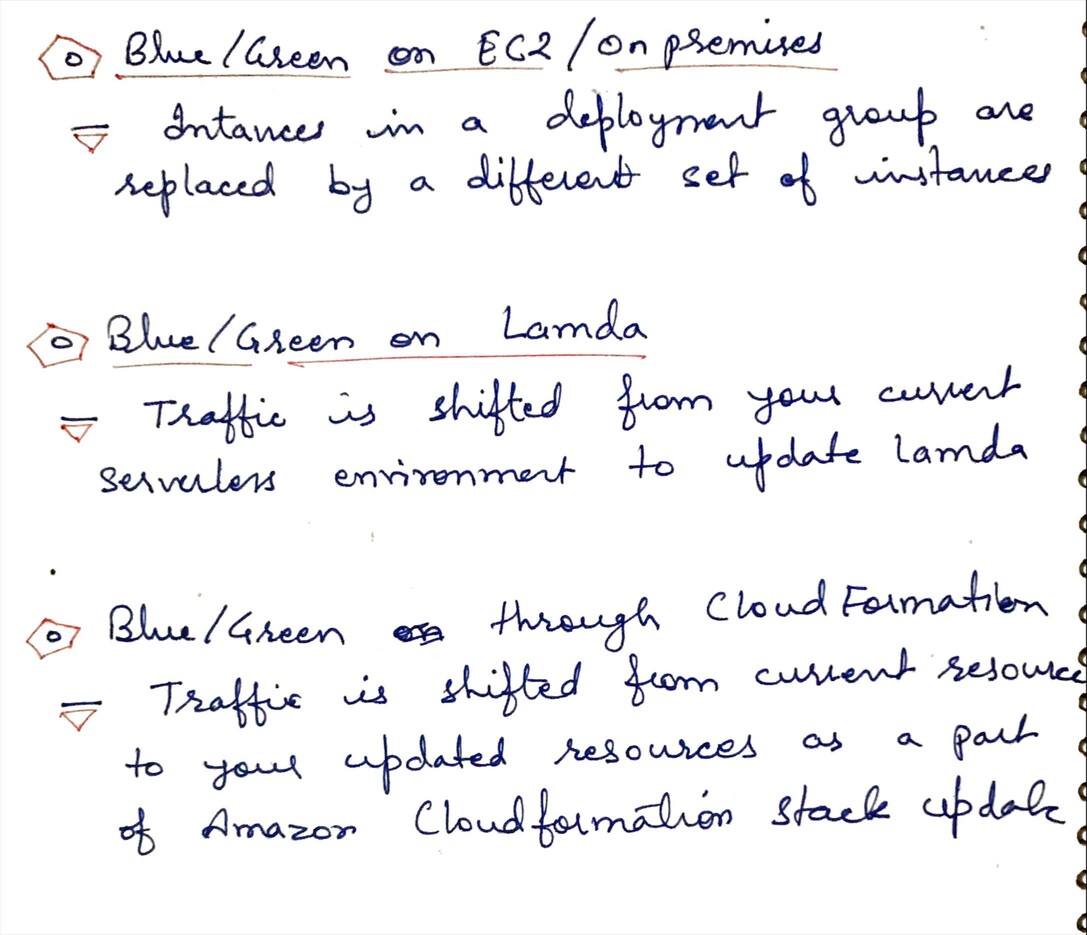 Blue/Green on EC2/on premises
Intances in a deployment group are
replaced by a different set of instances
Blue/Green on Lamda
Traffic is shifted from your current
serverless environment to update lamda
Blue/Green through Cloud Formation
Traffic is shifted from current resource
to your updated resources as a part
of Amazon Cloudformation stack update